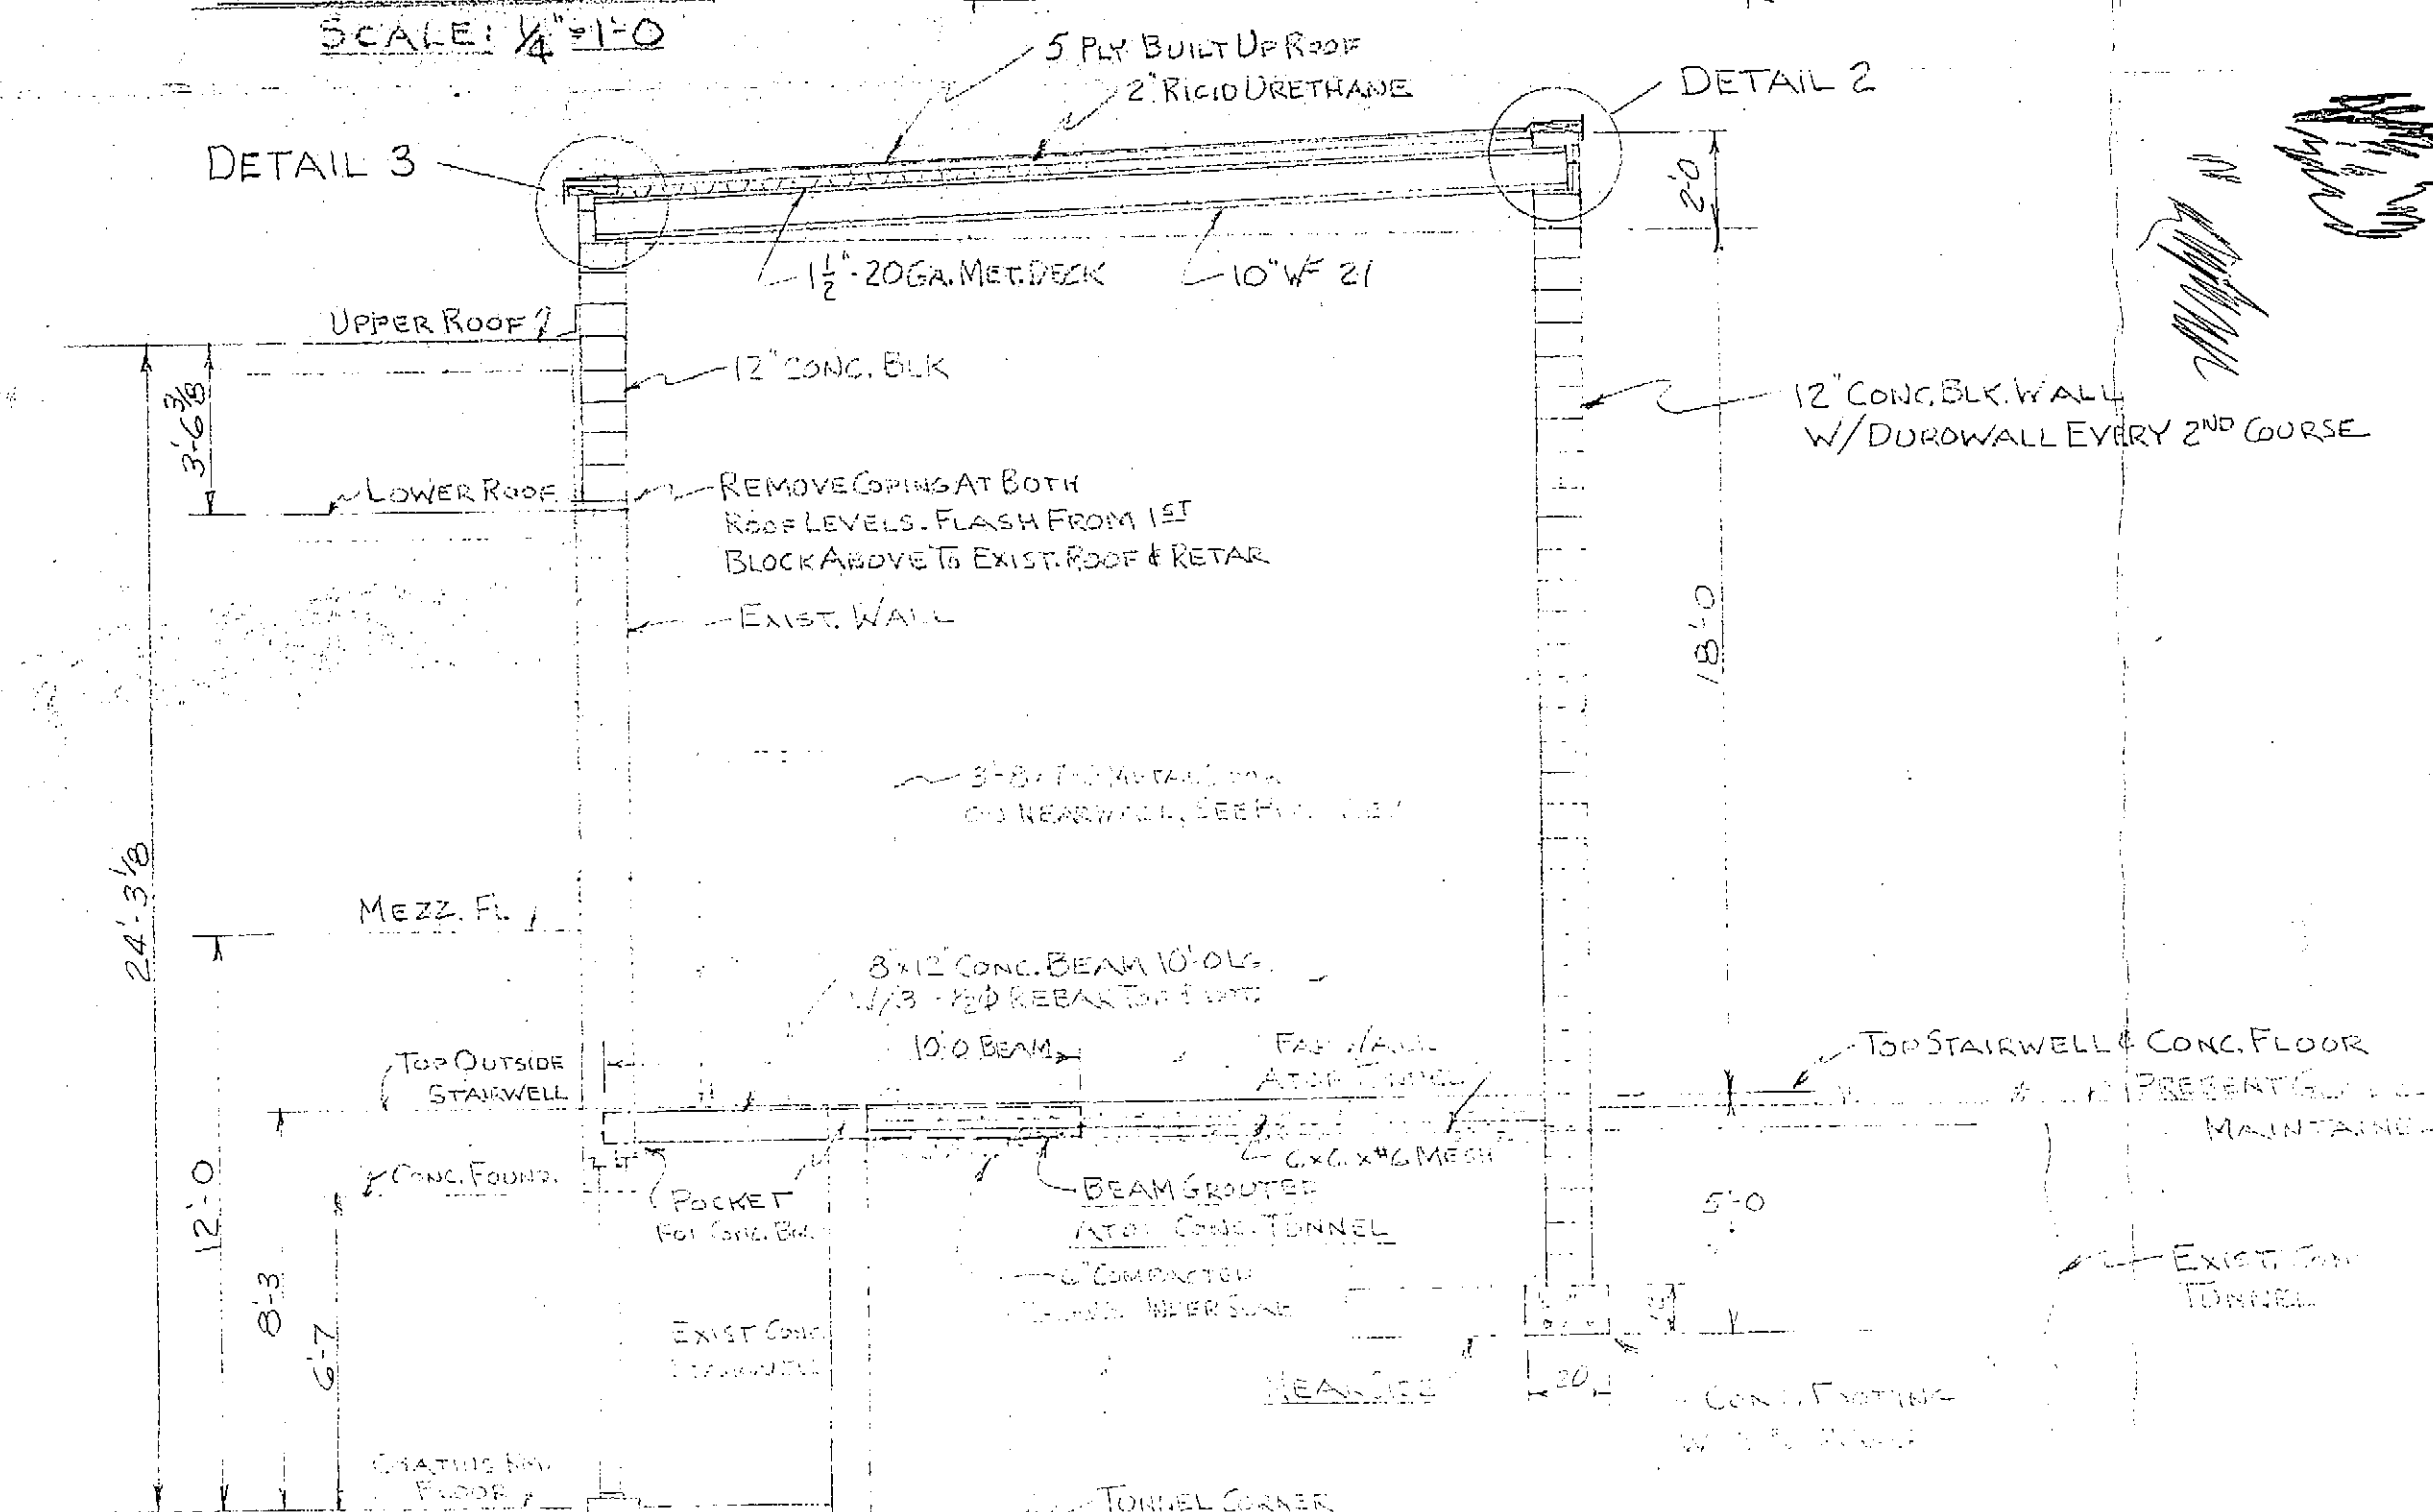 SCALE: 1/4"=1'-0
5 PLY BUILT UP ROOF
2" RIGID URETHANE
DETAIL 2
DETAIL 3
2'-0
1 1/2"-20GA. MET. DECK
10" WF 21
UPPER ROOF
12" CONC. BLK
3'-6 3/8
12" CONC. BLK. WALL
W/DUROWALL EVERY 2ND COURSE
LOWER ROOF
REMOVE COPING AT BOTH
ROOF LEVELS. FLASH FROM 1ST
BLOCK ABOVE TO EXIST. ROOF & RETAR
EXIST. WALL
18'-0
ON NEAR WALL, SEE
24'-3 1/8
MEZZ. FL.
8x12" CONC. BEAM 10'-0 LG.
W/3 - 1/2φ REBAR TOP & BOT.
10'-0 BEAM
FAR WALL
ATOP TUNNEL
TOP OUTSIDE
STAIRWELL
TOP STAIRWELL & CONC. FLOOR
PRESENT
MAINTAINED
6x6x#6 MESH
CONC. FOUND.
12'-0
POCKET
FOR CONC. BM.
BEAM GROUTED
ATOP CONC. TUNNEL
5'-0
6" COMPACTED
UNDER SLAB
EXIST. CON
TUNNEL
8'-3
6'-7
EXIST CONC.
STAIRWELL
NEAR SIDE
20
CONC. FOOTING
COATING RM.
FLOOR
TUNNEL CORNER